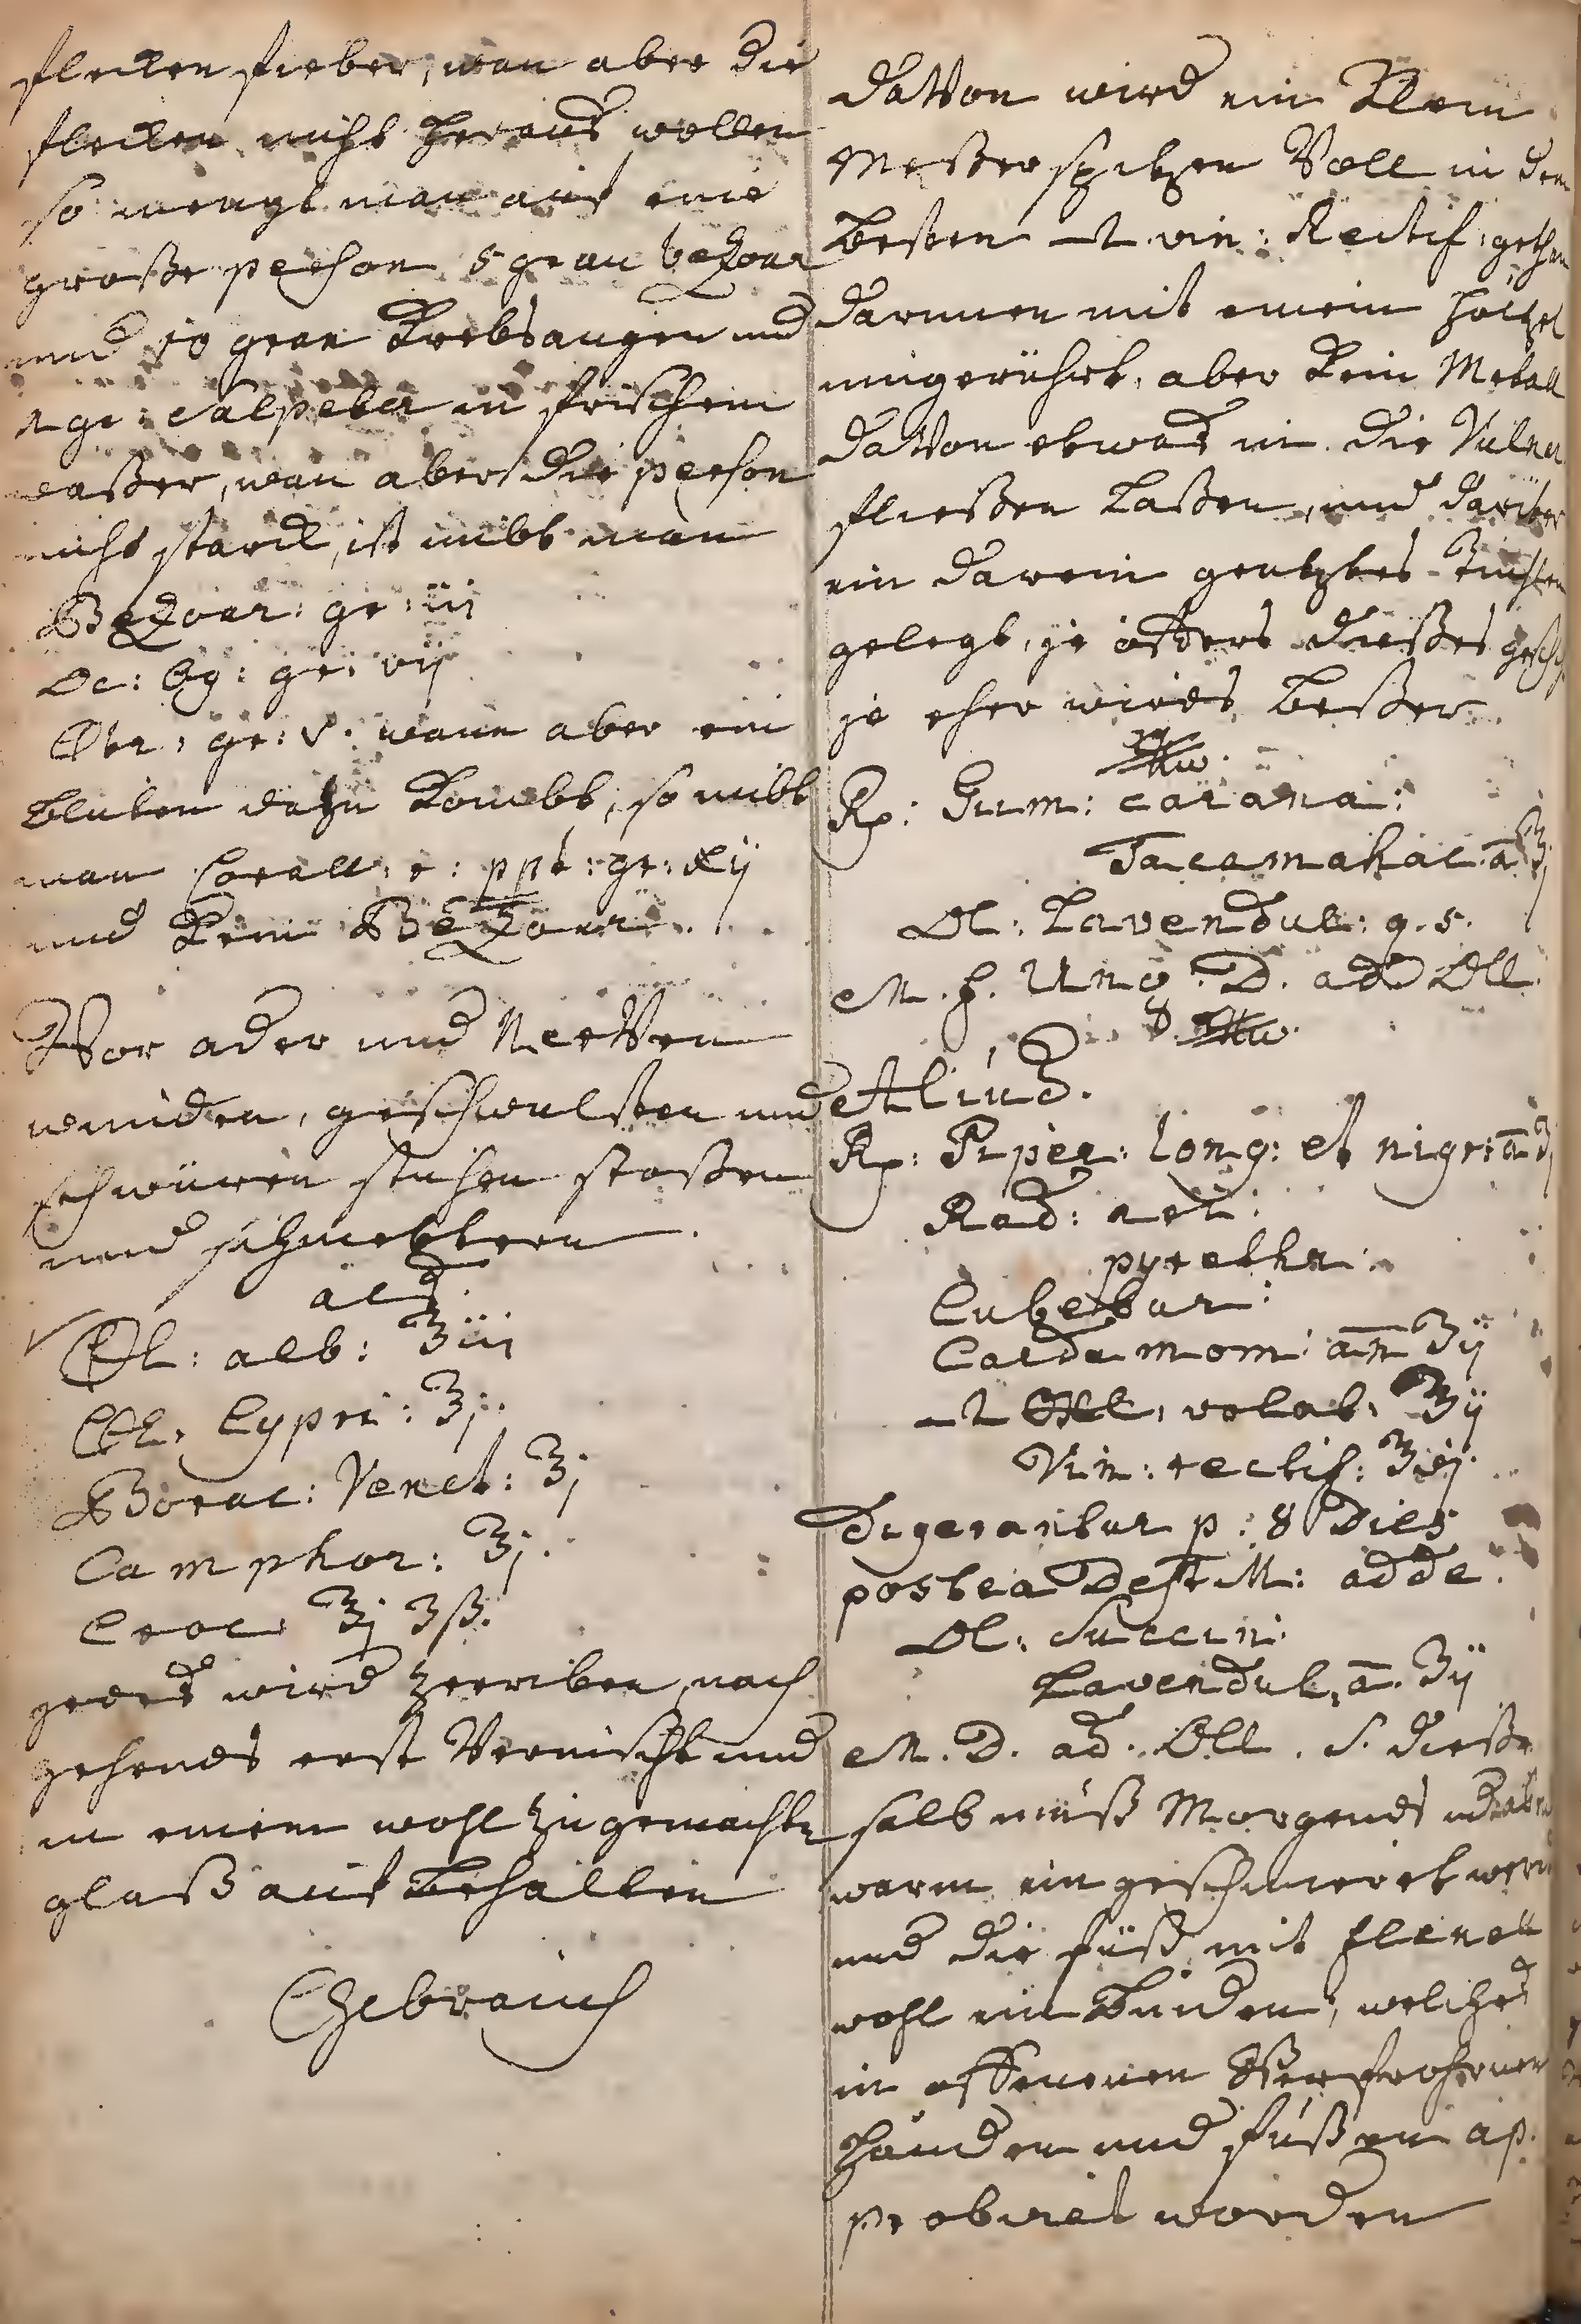 flecken fieber, wan aber die
flecken nicht heraus wollen
so mengt man auf eine
große person 5 gran bezoar
und 10 gran Krebsaugen und
gr: Salpeter in frischem
waßer, wan aber die person
nicht starck, ist nibt man
Bezoar: gr: iii
Oc: 69: gr: vij
gr: V. wann aber ein
bluten dazu kombt, so nibt
man Corall: r: ppt: gr: xij
und kein Bezoar.
Vor ader und Nerven
wunden, geschwulsten und
schwüren stichen stoßen
und
acd.
Ol: alb: ʒiii
Ol: Cypri: ʒj.
Borac: Venet: ʒj
Camphor: ʒj.
Croc: ʒj ʒß.
gedes wird zerriben, nach
gehends erst Vermischt und
in einem wohl zugemachtn
glaß auf behalten
Gebrauch
daVon wird ein klein
Meßer spitzen Voll in dem
besten vin: Rectif: gethan
darinnen mit einem höltzel
umgerührt, aber kein Metall
daVon etwas in die Vulner
fließen laßen, und darüber
ein darein genetztes
gelegt, je öffters dießes
je eher wirds beßer.
Rp: Gum: carana:
Tacamahac: a ʒj
Ol: Lavendul: q. s.
M. f. Ung. D. ad Oll
Aliud.
Rp: Piper: long: et nigr: a ʒj
Rad: ari:
pyrethr:
Cubebar:
Cardamom: an ʒij
volat: ʒij
Vin: rectif: ʒxij.
Digerantur p: 8 Dies
postea Destill: adde.
Ol: Succin:
Lavendul, a. ʒij
M. D. ad. Oll. S. dieße
salb muß Morgends
warm ein geschmieret
und die füß mit flenell
wohl ein binden, welches
in offenenen
händen und füßen ap.
probiret worden